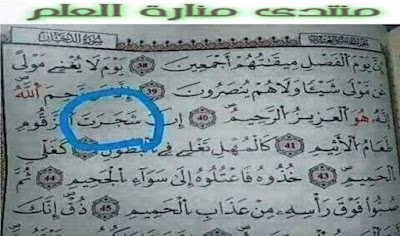 منتدى منارة العلم
سُورَةُ الدُّخَانِ
إِنَّ يَوْمَ الْفَصْلِ مِيقَٰتُهُمْ أَجْمَعِينَ 38 يَوْمَ لَا يُغْنِي مَوْلًى
عَن مَّوْلًى شَيْـًٔا وَلَا هُمْ يُنصَرُونَ 39 رَّحِمَ اللَّهُ
إِنَّهُ هُوَ الْعَزِيزُ الرَّحِيمُ 40 إِنَّ شَجَرَتَ الزَّقُّومِ
طَعَامُ الْأَثِيمِ 41 كَالْمُهْلِ يَغْلِي فِي الْبُطُونِ كَغَلْيِ
الْحَمِيمِ 43 خُذُوهُ فَاعْتِلُوهُ إِلَىٰ سَوَاءِ الْجَحِيمِ 44 ثُمَّ
صُبُّوا فَوْقَ رَأْسِهِ مِنْ عَذَابِ الْحَمِيمِ 45 ذُقْ إِنَّكَ